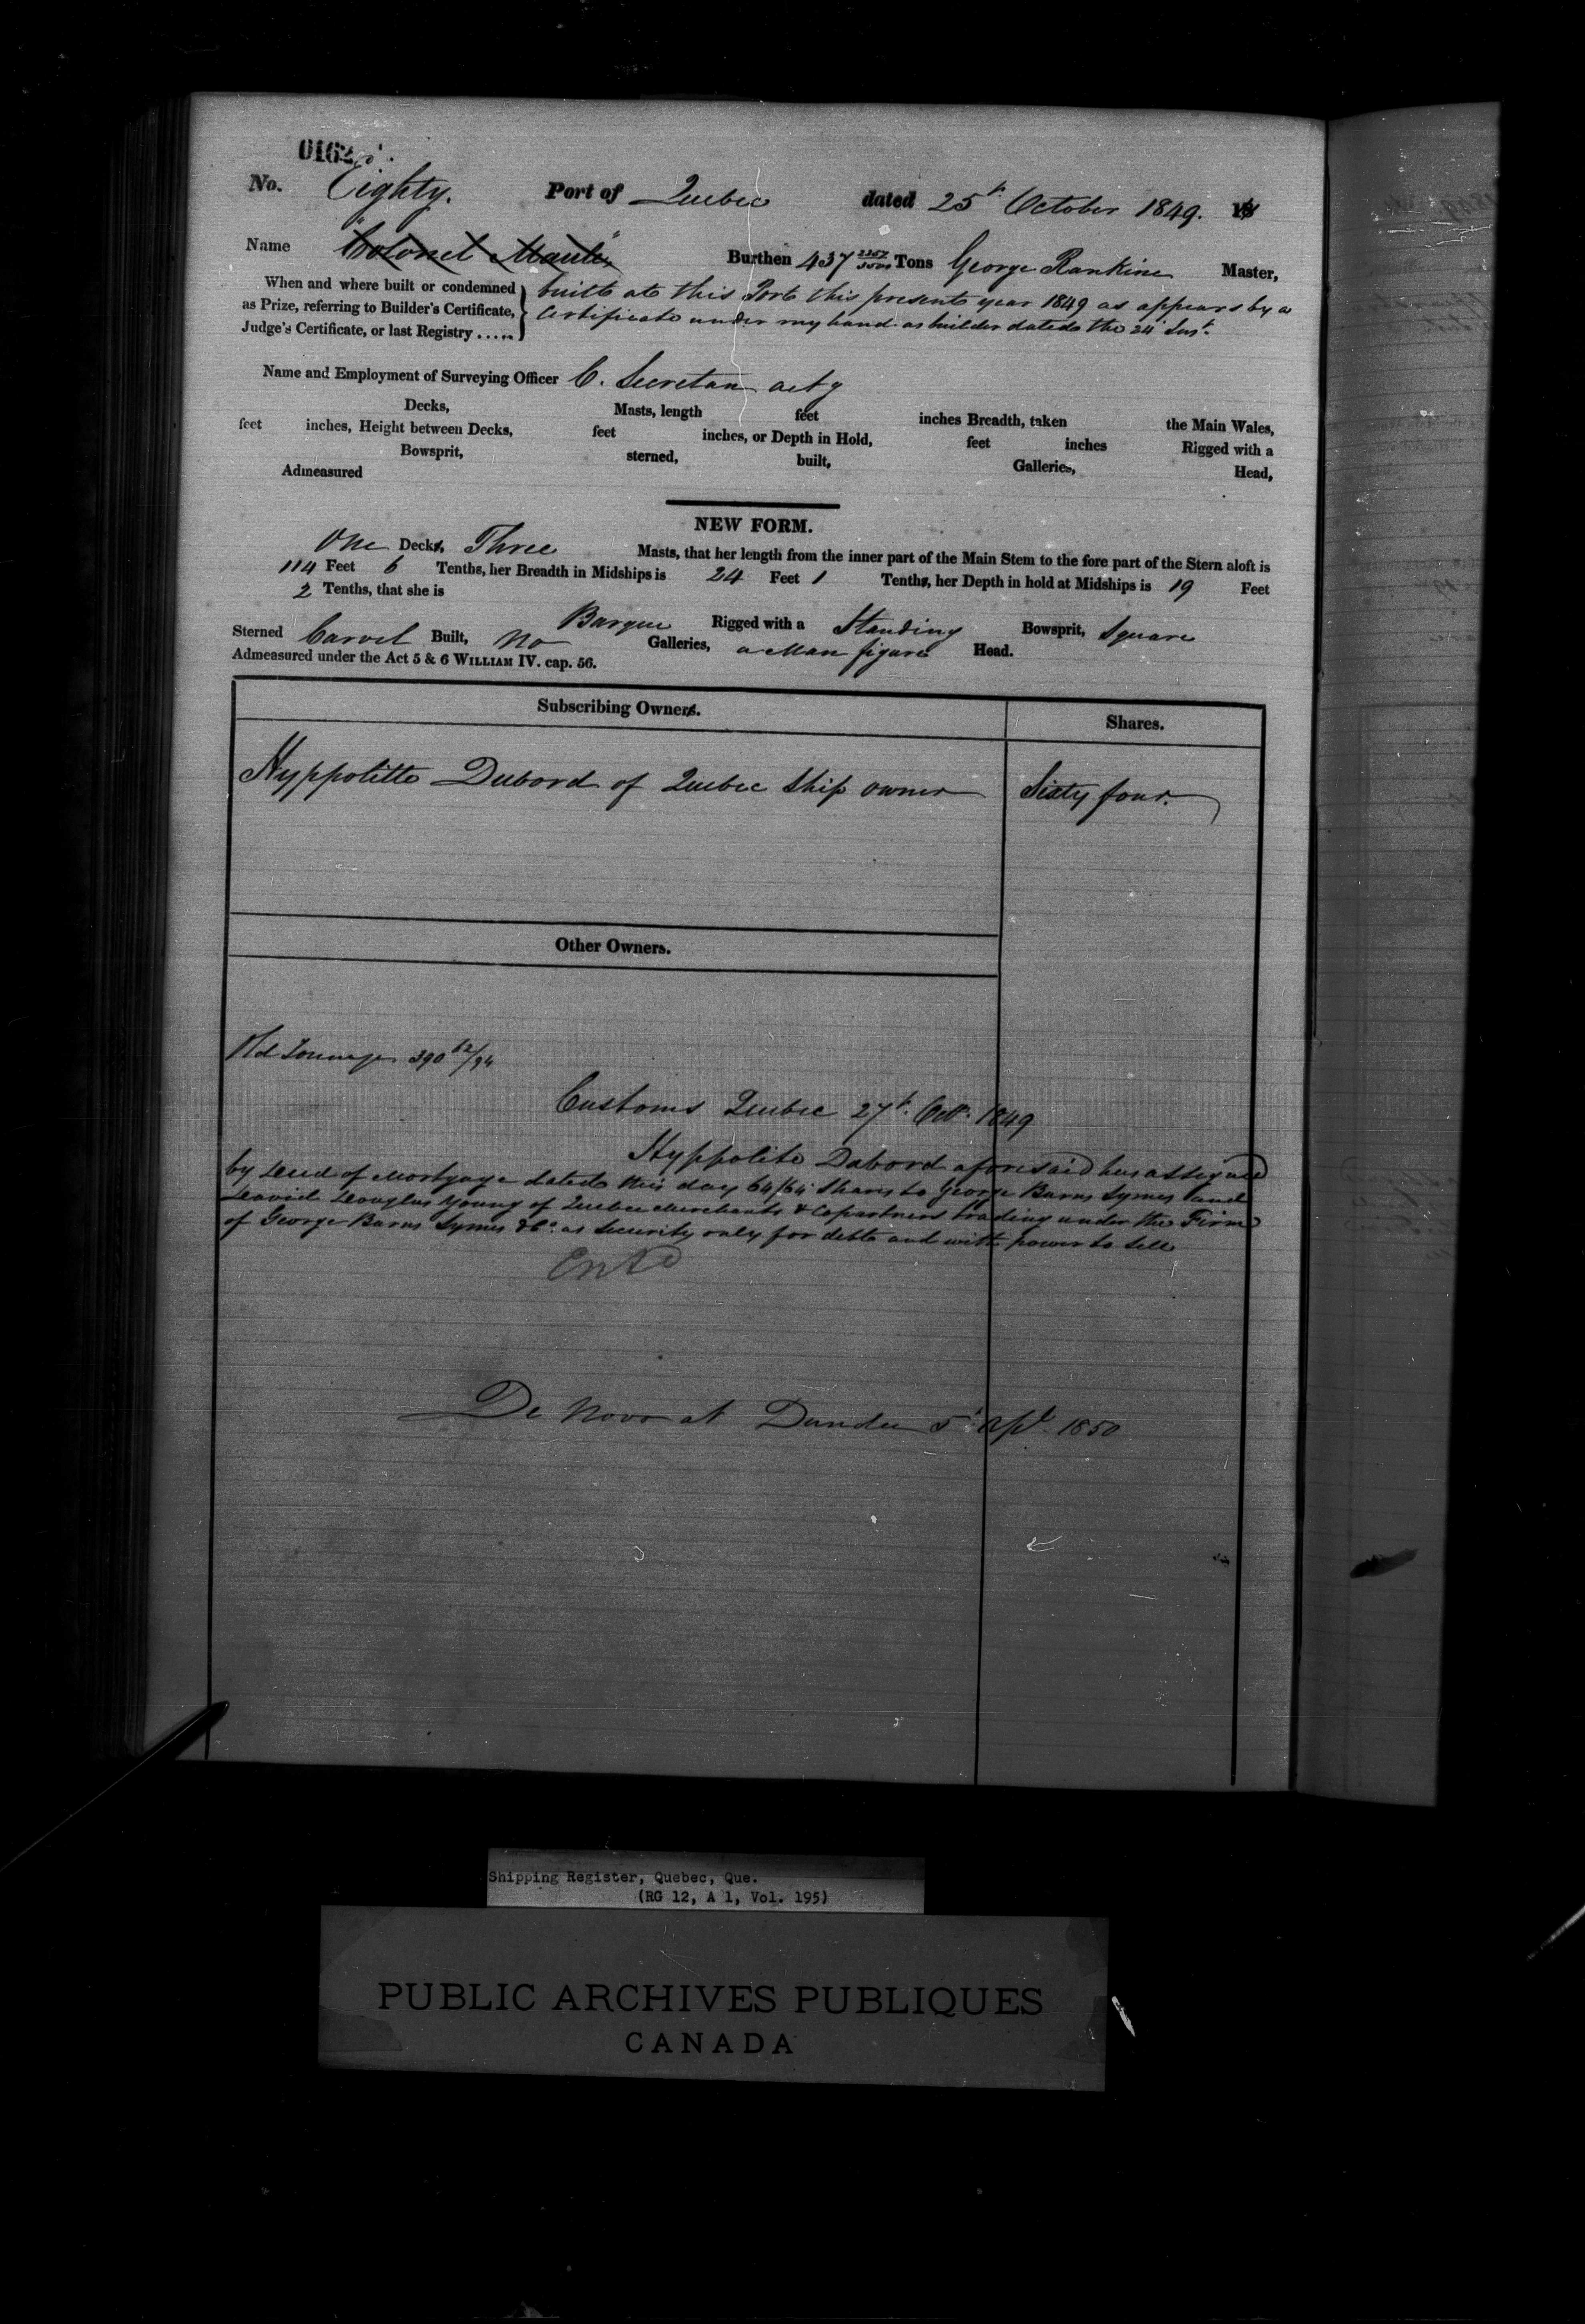 0162
No. Eighty. Port of Quebec dated 25th October 1849. 18
Name "Colonel Maule" Burthen 437 2257/3500 Tons George Rankine Master,
When and where built or condemned
as Prize, referring to Builder's Certificate,
Judge's Certificate, or last Registry .....
built at this Port this present year 1849 as appears by a
Certificate under my hand as builder dated the 24th Inst.
Name and Employment of Surveying Officer C. Secretan actg
Decks, Masts, length feet inches Breadth, taken the Main Wales,
feet inches, Height between Decks, feet inches, or Depth in Hold, feet inches Rigged with a
Bowsprit, sterned, built, Galleries, Head,
Admeasured
NEW FORM.
One Decks, Three Masts, that her length from the inner part of the Main Stem to the fore part of the Stern aloft is
114 Feet 6 Tenths, her Breadth in Midships is 24 Feet 1 Tenths, her Depth in hold at Midships is 19 Feet
2 Tenths, that she is
Barque Rigged with a Standing Bowsprit, Square
Sterned Carvel Built, No Galleries, a Man figure Head.
Admeasured under the Act 5 & 6 WILLIAM IV. cap. 56.
Subscribing Owners. Shares.
Hyppolitte Dubord of Quebec Ship owner Sixty four.
Other Owners.
Old Tonnage 390 62/94
Customs Quebec 27th Octr. 1849
Hyppolite Dubord aforesaid has assigned
by Deed of Mortgage dated this day 64/64 Shares to George Burns Symes and
David Douglas Young of Quebec Merchants & Copartners trading under the Firm
of George Burns Symes & Co. as Security only for debt and with power to Sell
Entd
De Novo at Dundee 5th Apl 1850
Shipping Register, Quebec, Que.
(RG 12, A 1, Vol. 195)
PUBLIC ARCHIVES PUBLIQUES
CANADA